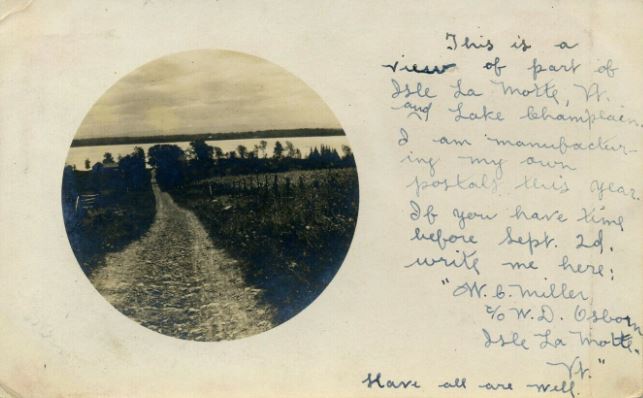 This is a
view of part of
Isle La Motte, Vt.
and Lake Champlain.
I am manufactur-
ing my own
postals this year.
If you have time
before Sept. 2d.
write me here:
"W. C. Miller
c/o W. D. Osborn
Isle La Motte,
Vt."
Have all are well.